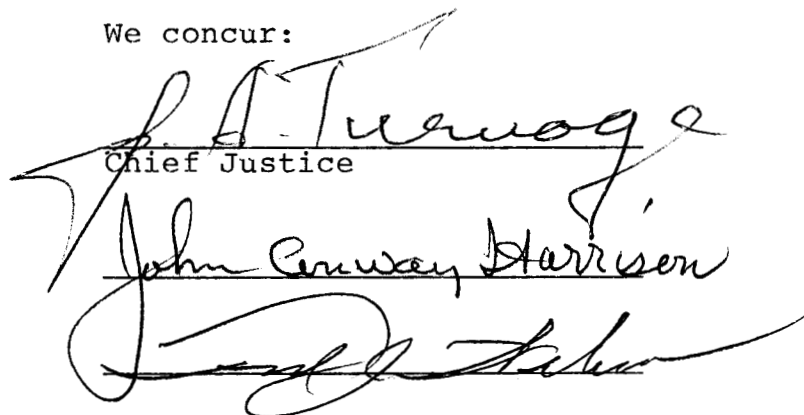 We concur:
J. A. Turnage
Chief Justice
John Conway Harrison